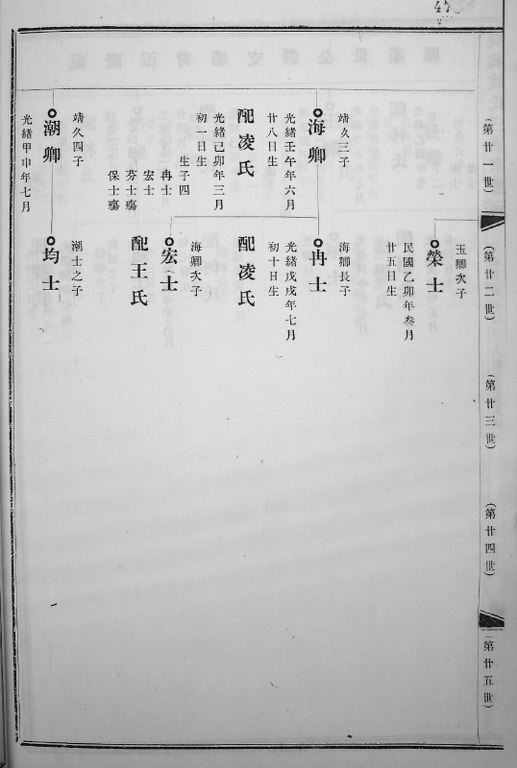 47
（第廿一世）
（第廿二世）
（第廿三世）
（第廿四世）
（第廿五世）
玉卿次子
榮士
民國乙卯年叁月
廿五日生
靖久三子
海卿
光緒壬午年六月
廿八日生
配凌氏
光緒己卯年三月
初一日生
生子四
冉士
宏士
芬士殤
保士殤
海卿長子
冉士
光緒戊戌年七月
初十日生
配凌氏
海卿次子
宏士
配王氏
靖久四子
潮卿
光緒甲申年七月
潮士之子
均士